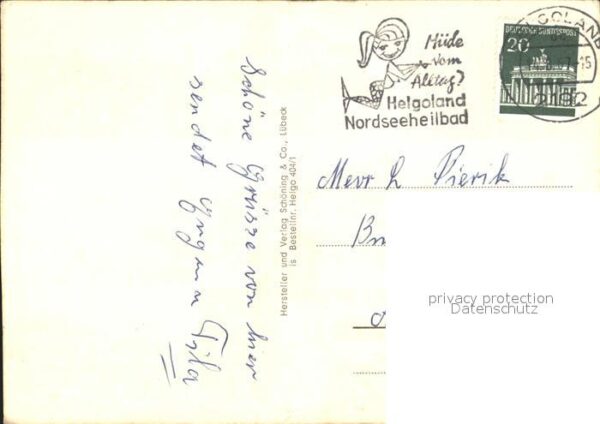 Müde
vom
Alltag?
Helgoland
Nordseeheilbad
DEUTSCHE BUNDESPOST
20
2192
Schöne Grüsse von hier
sendet
Hersteller und Verlag Schöning & Co., Lübeck
is Bestellnr. Helgo 404/1
Mevr L Pierik
privacy protection
Datenschutz